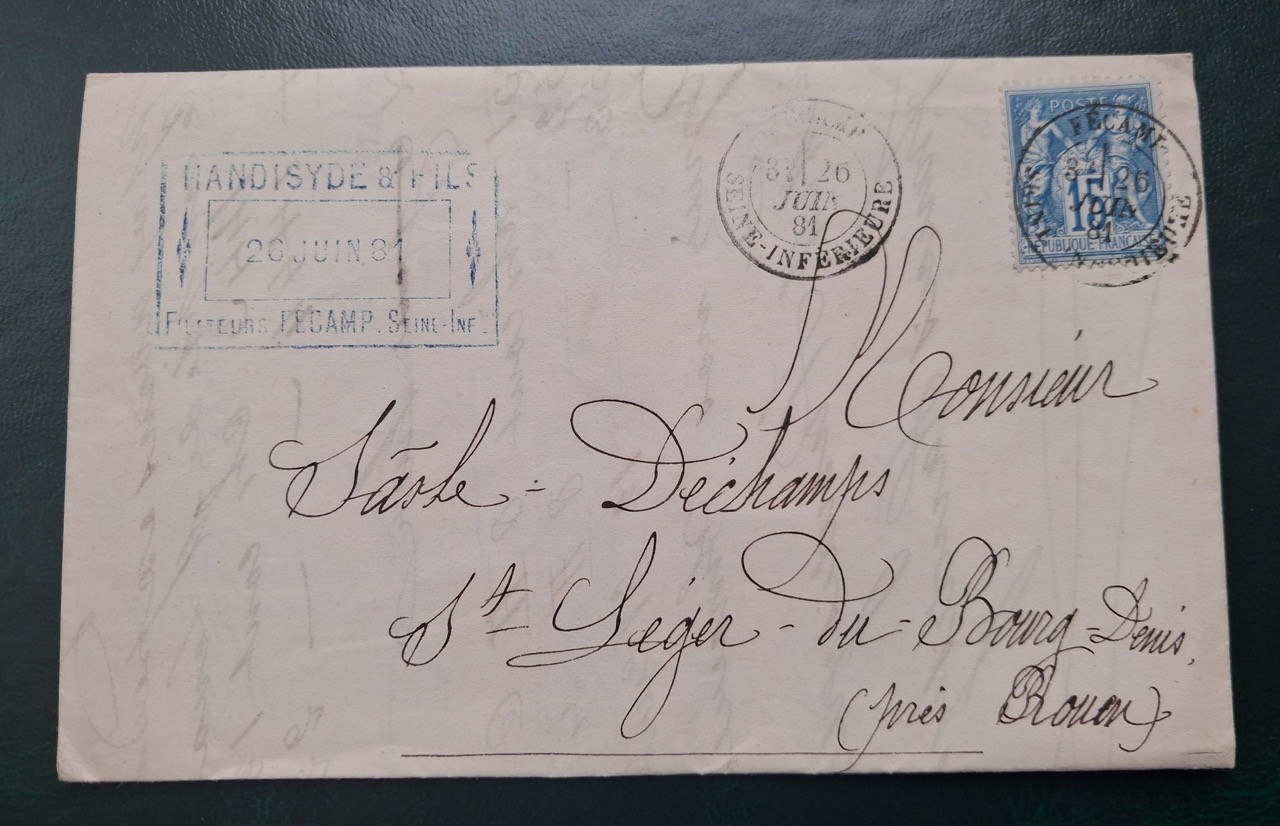 HANDISYDE & FILS
26 JUIN 81
FILATEURS FÉCAMP. SEINE-INF.
FÉCAMP
26
JUIN
81
SEINE-INFÉRIEURE
POSTE
15
RÉPUBLIQUE FRANÇAISE
FÉCAMP
26
JUIN
81
SEINE-INFÉRIEURE
Monsieur
Déchamps
St Léger-du-Bourg-Denis,
(près Rouen)